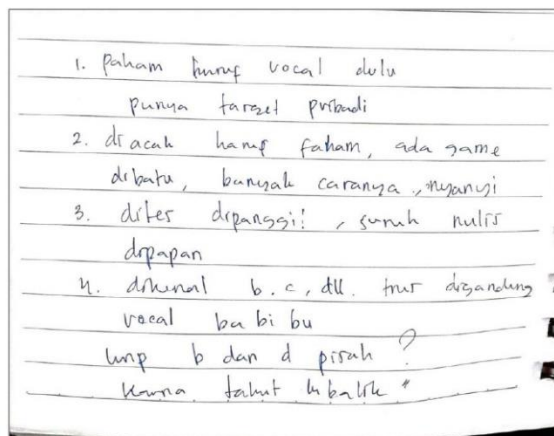 1. paham huruf vocal dulu
punya target pribadi
2. di acak harus faham, ada game
dibatu, banyak caranya, nyanyi
3. dites dipanggil, suruh nulis
dipapan
4. dikenal b. c, dll. trus digandeng
vocal ba bi bu
b dan d pisah ?
karna takut kbalik "